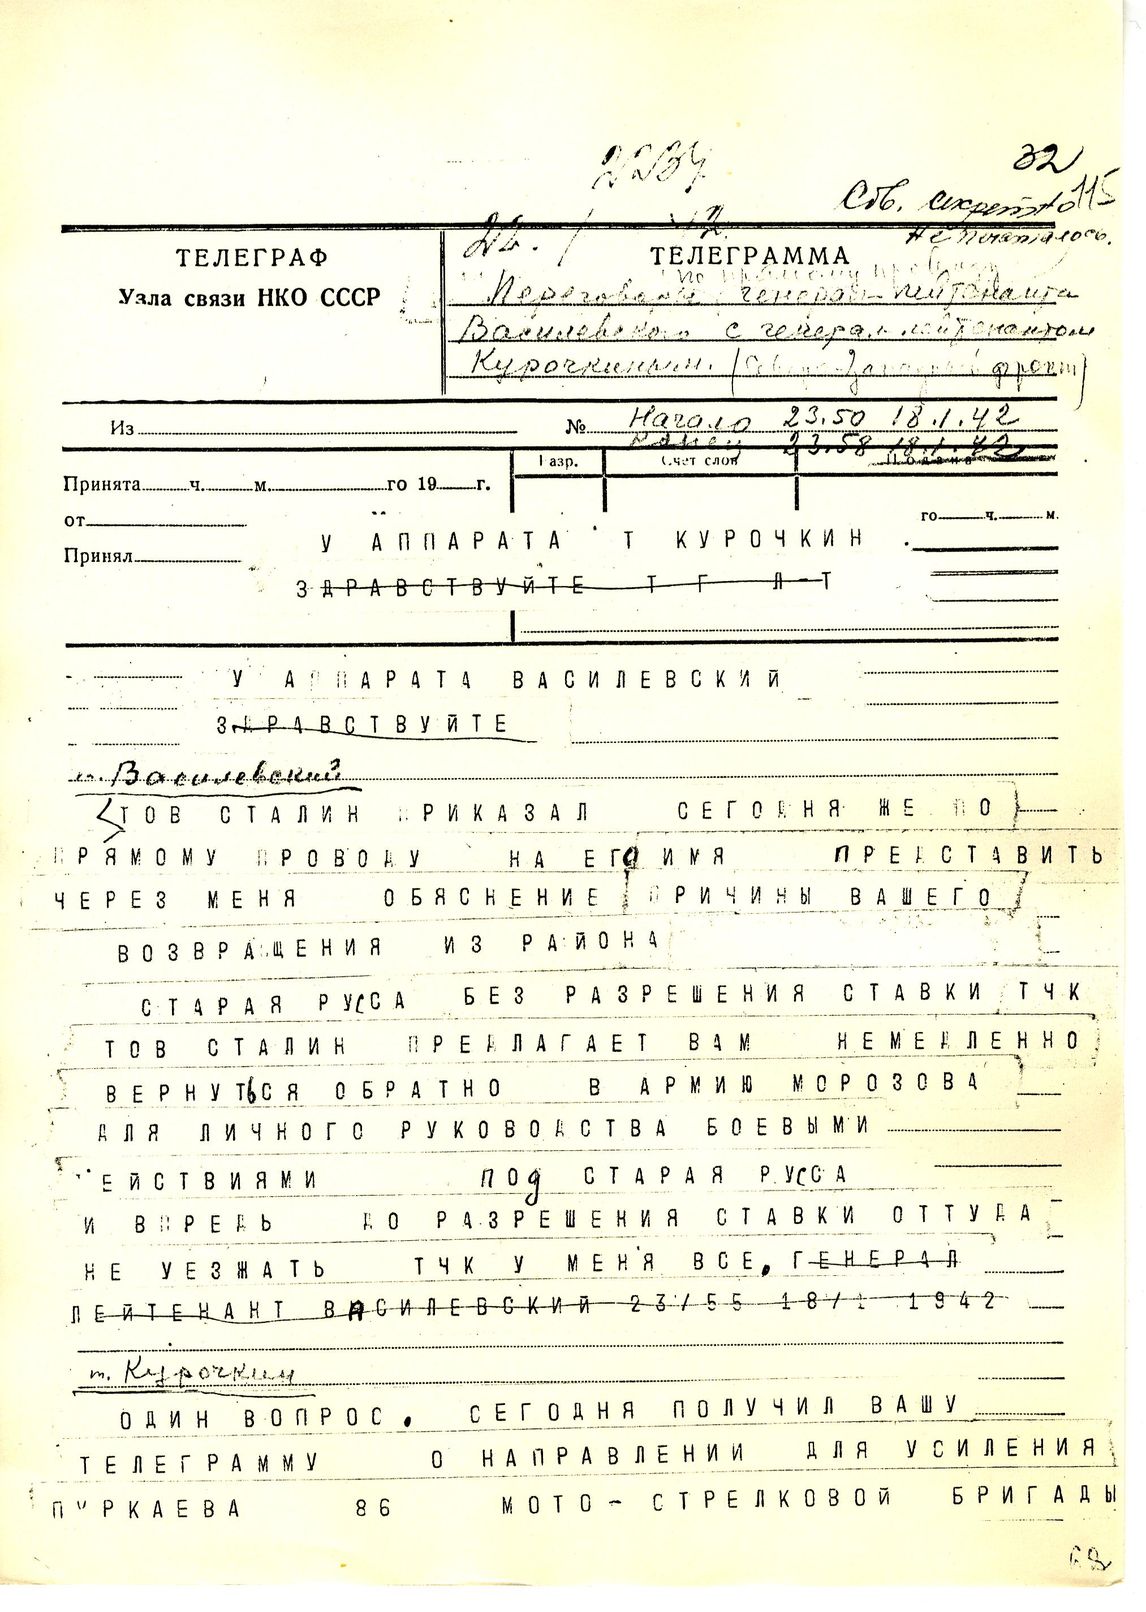 2234
32
Сов. секретно
115
Не печаталось.
22. / 12
ТЕЛЕГРАФ
Узла связи НКО СССР
ТЕЛЕГРАММА
по прямому проводу
Переговоры генерал-лейтенанта
Василевского с генерал лейтенантом
Курочкиным. (Северо-Западный фронт)
Из № Начало 23.50 18.1.42
конец 23.58 18.1.42
Разр. Счет слов Подана
Принята ч. м. го 19 г.
от го ч. м.
Принял
У АППАРАТА Т КУРОЧКИН
ЗДРАВСТВУЙТЕ Т Г Л-Т
У АППАРАТА ВАСИЛЕВСКИЙ
ЗДРАВСТВУЙТЕ
т. Василевский
ТОВ СТАЛИН ПРИКАЗАЛ СЕГОДНЯ ЖЕ ПО
ПРЯМОМУ ПРОВОДУ НА ЕГО ИМЯ ПРЕДСТАВИТЬ
ЧЕРЕЗ МЕНЯ ОБЯСНЕНИЕ ПРИЧИНЫ ВАШЕГО
ВОЗВРАЩЕНИЯ ИЗ РАЙОНА
СТАРАЯ РУССА БЕЗ РАЗРЕШЕНИЯ СТАВКИ ТЧК
ТОВ СТАЛИН ПРЕДЛАГАЕТ ВАМ НЕМЕДЛЕННО
ВЕРНУТЬСЯ ОБРАТНО В АРМИЮ МОРОЗОВА
ДЛЯ ЛИЧНОГО РУКОВОДСТВА БОЕВЫМИ
ДЕЙСТВИЯМИ ПОД СТАРАЯ РУССА
И ВПРЕДЬ ДО РАЗРЕШЕНИЯ СТАВКИ ОТТУДА
НЕ УЕЗЖАТЬ ТЧК У МЕНЯ ВСЕ. ГЕНЕРАЛ
ЛЕЙТЕНАНТ ВАСИЛЕВСКИЙ 23/55 18/1 1942
т. Курочкин
ОДИН ВОПРОС. СЕГОДНЯ ПОЛУЧИЛ ВАШУ
ТЕЛЕГРАММУ О НАПРАВЛЕНИИ ДЛЯ УСИЛЕНИЯ
ПУРКАЕВА 86 МОТО-СТРЕЛКОВОЙ БРИГАДЫ